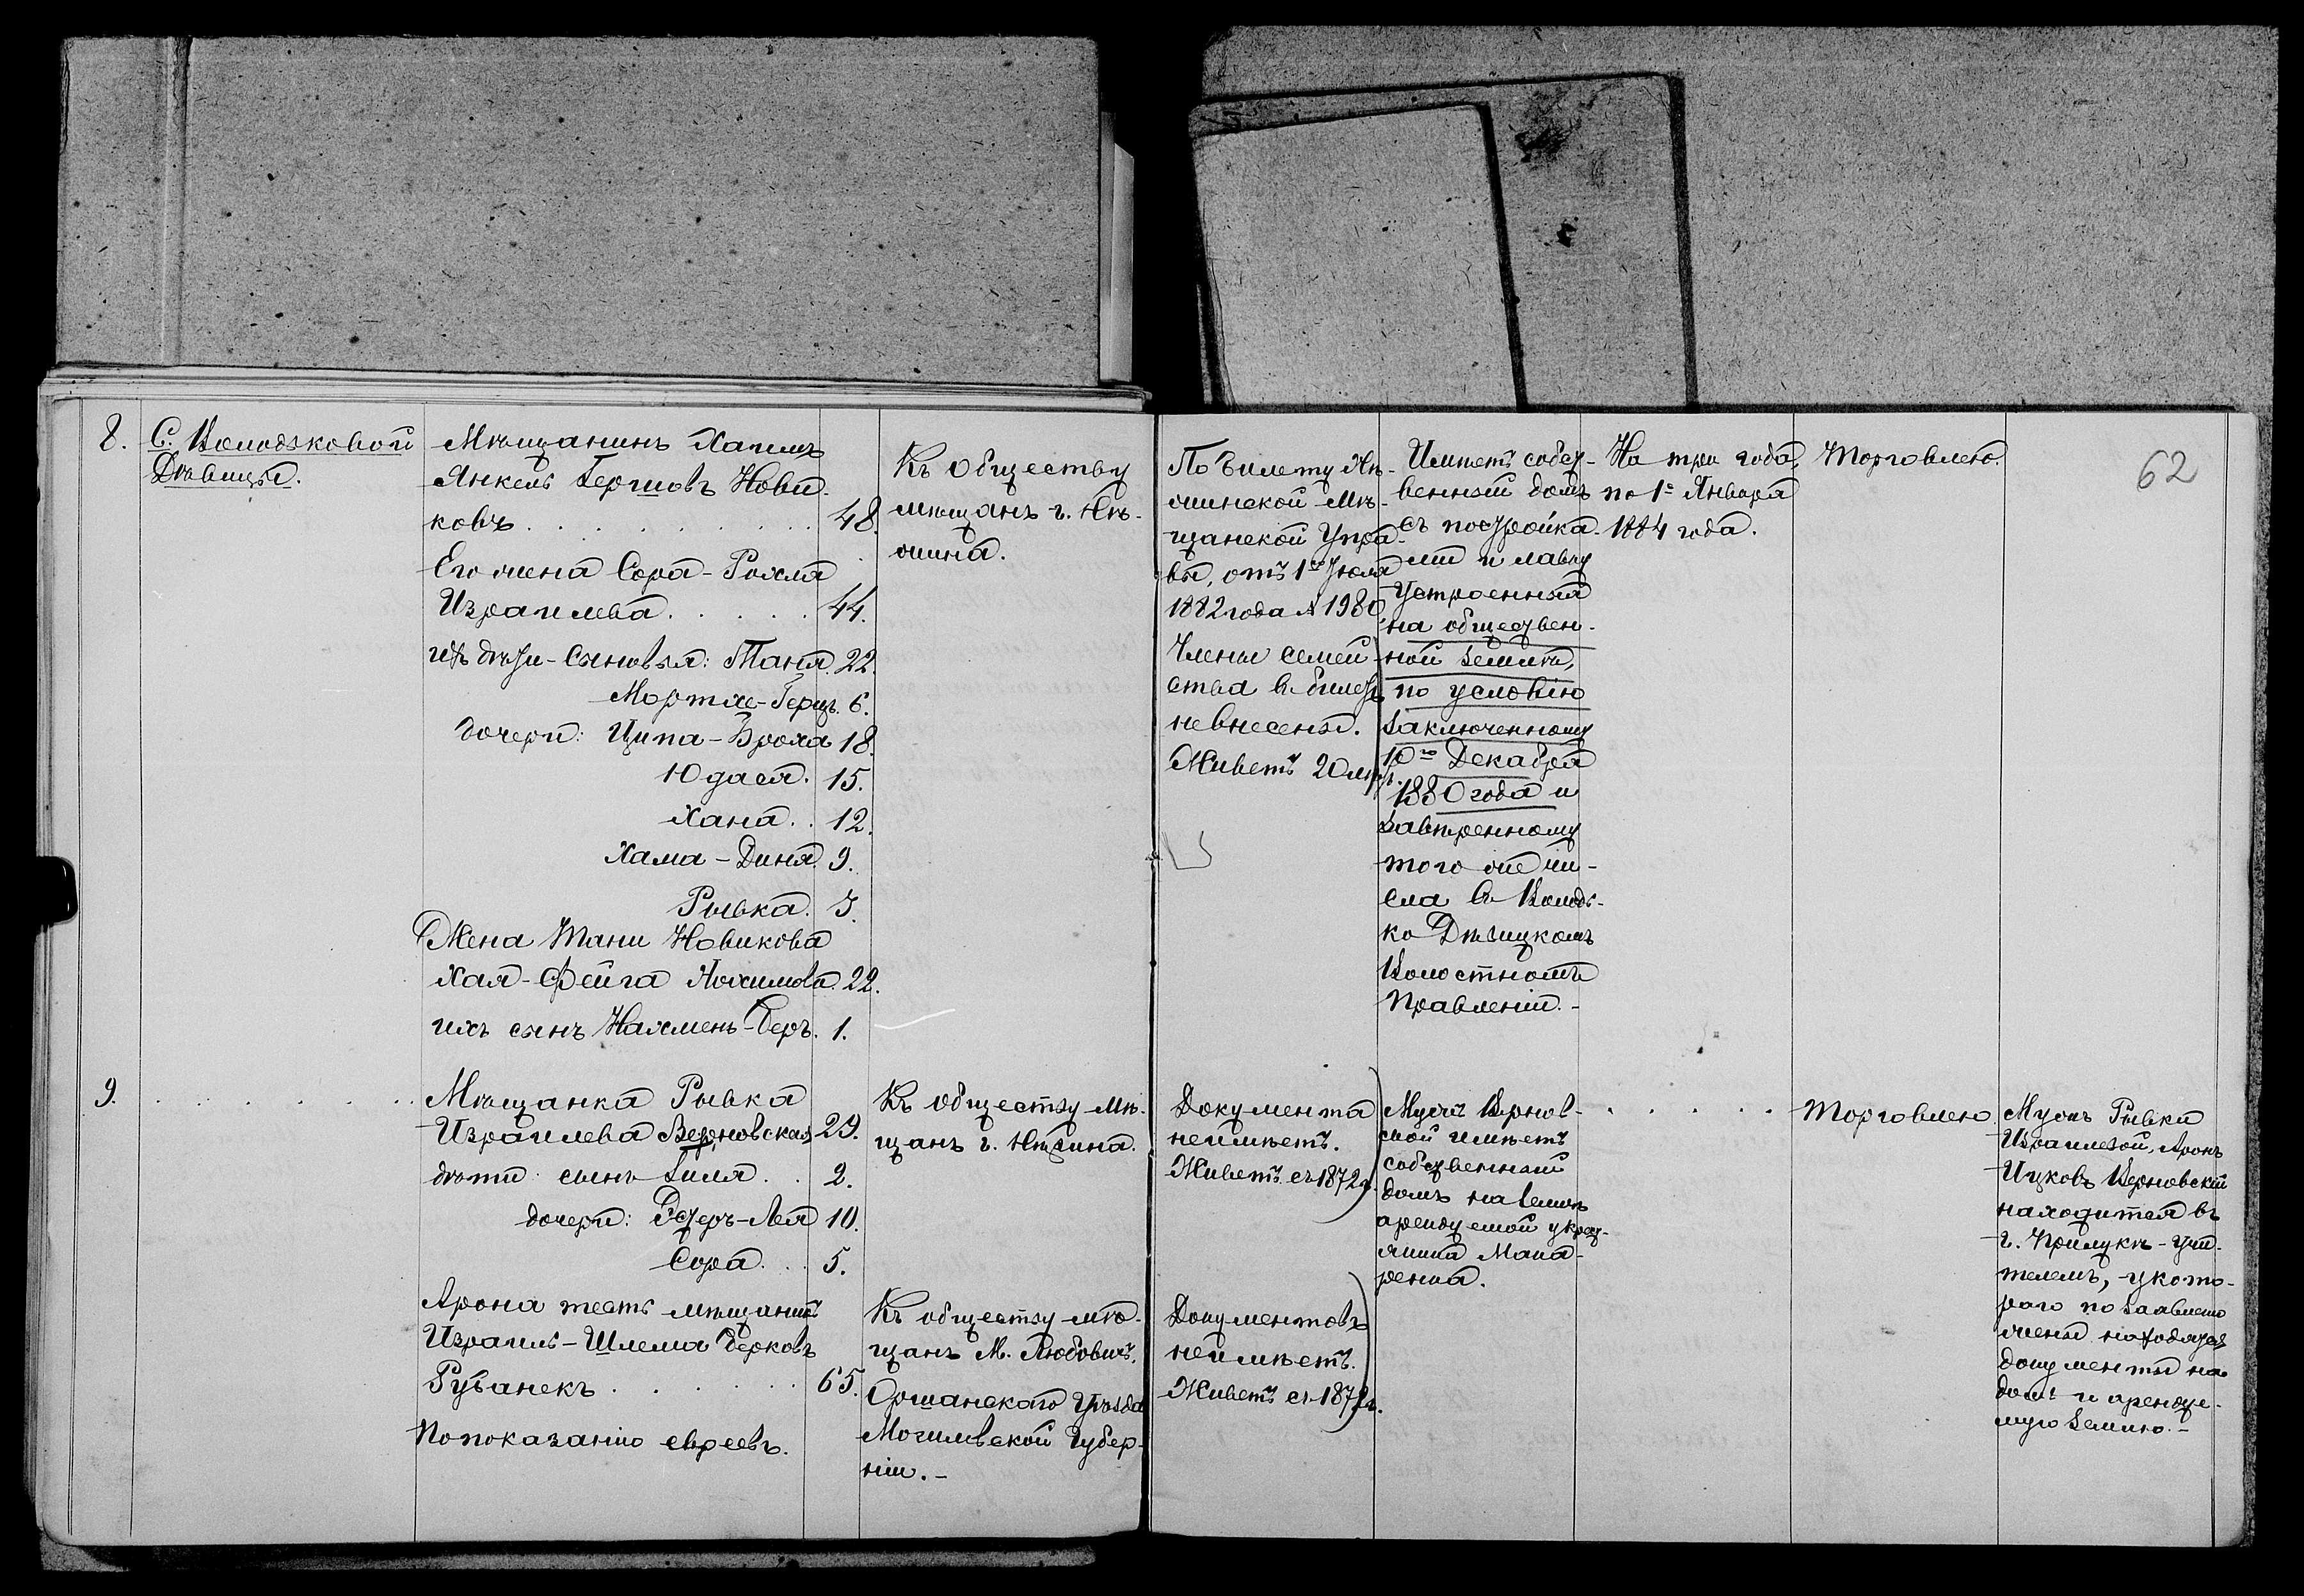 8.
С. Володьковой
Дѣвицы.
Мѣщанинъ Хаимъ
Янкель Гершовъ Нови-
ковъ . . . . . . . . 48.
Его жена Сора-Рохля
Израилева . . . . . 44.
ихъ дѣти - Сыновья: Таня. 22.
Мортхе-Герцъ. 6.
дочери: Ципа-Броха 18.
Юдася. 15.
Хана. . 12.
Хама-Диня. 9.
Рывка. 3.
Жена Тани Новикова
Хая-Фейга Нохимова. 22.
ихъ сынъ Нахмень-Беръ. 1.
Къ Обществу
мѣщанъ г. Нѣ-
жина.
По билету Нѣ-
жинской Мѣ-
щанской Упра-
вы, отъ 1го Іюля
1882 года № 1980
Члены семей-
ства въ билетъ
не внесены.
Живетъ 20 лѣтъ.
Имѣетъ собст-
венный домъ
съ постройка-
ми и лавку
устроенный
на обществен-
ной землѣ,
по условію
заключенному
10го Декабря
1880 года и
завѣренному
того же чи-
сла въ Володь-
ко Дѣвицкомъ
Волостномъ
Правленіи. -
На три года,
по 1е Января
1884 года.
Торговлею.
62
9. . . . . . . .
Мѣщанка Рывка
Израилева Верновская 29.
дѣти: сынъ Зиля . . 2.
дочери: Эстеръ-Лея 10.
Сора. . . 5.
Арона тесть мѣщанинъ
Израиль-Шлема Берковъ
Рубанекъ . . . . . . 65.
По показанію евреевъ.
Къ обществу мѣ-
щанъ г. Нѣжина.
Къ обществу мѣ-
щанъ М. Любовичъ,
Оршанскаго Уѣзда
Могилевской Губер-
ніи. -
Документа
неимѣетъ.
Живетъ съ 1872 г.
Документовъ
неимѣетъ.
Живетъ съ 1872 г.
Мужъ Вернов-
ской имѣетъ
собственный
домъ на землѣ
арендуемой у крест-
янина Мака-
ренка.
. . . . .
Торговлею.
Мужъ Рывки
Израилевой, Аронъ
Ицковъ Верновскій
находится въ
г. Прилукѣ - учи-
телемъ, у кото-
раго по заявленію
жены находятся
документы на
домъ и арендуе-
мую землю. -